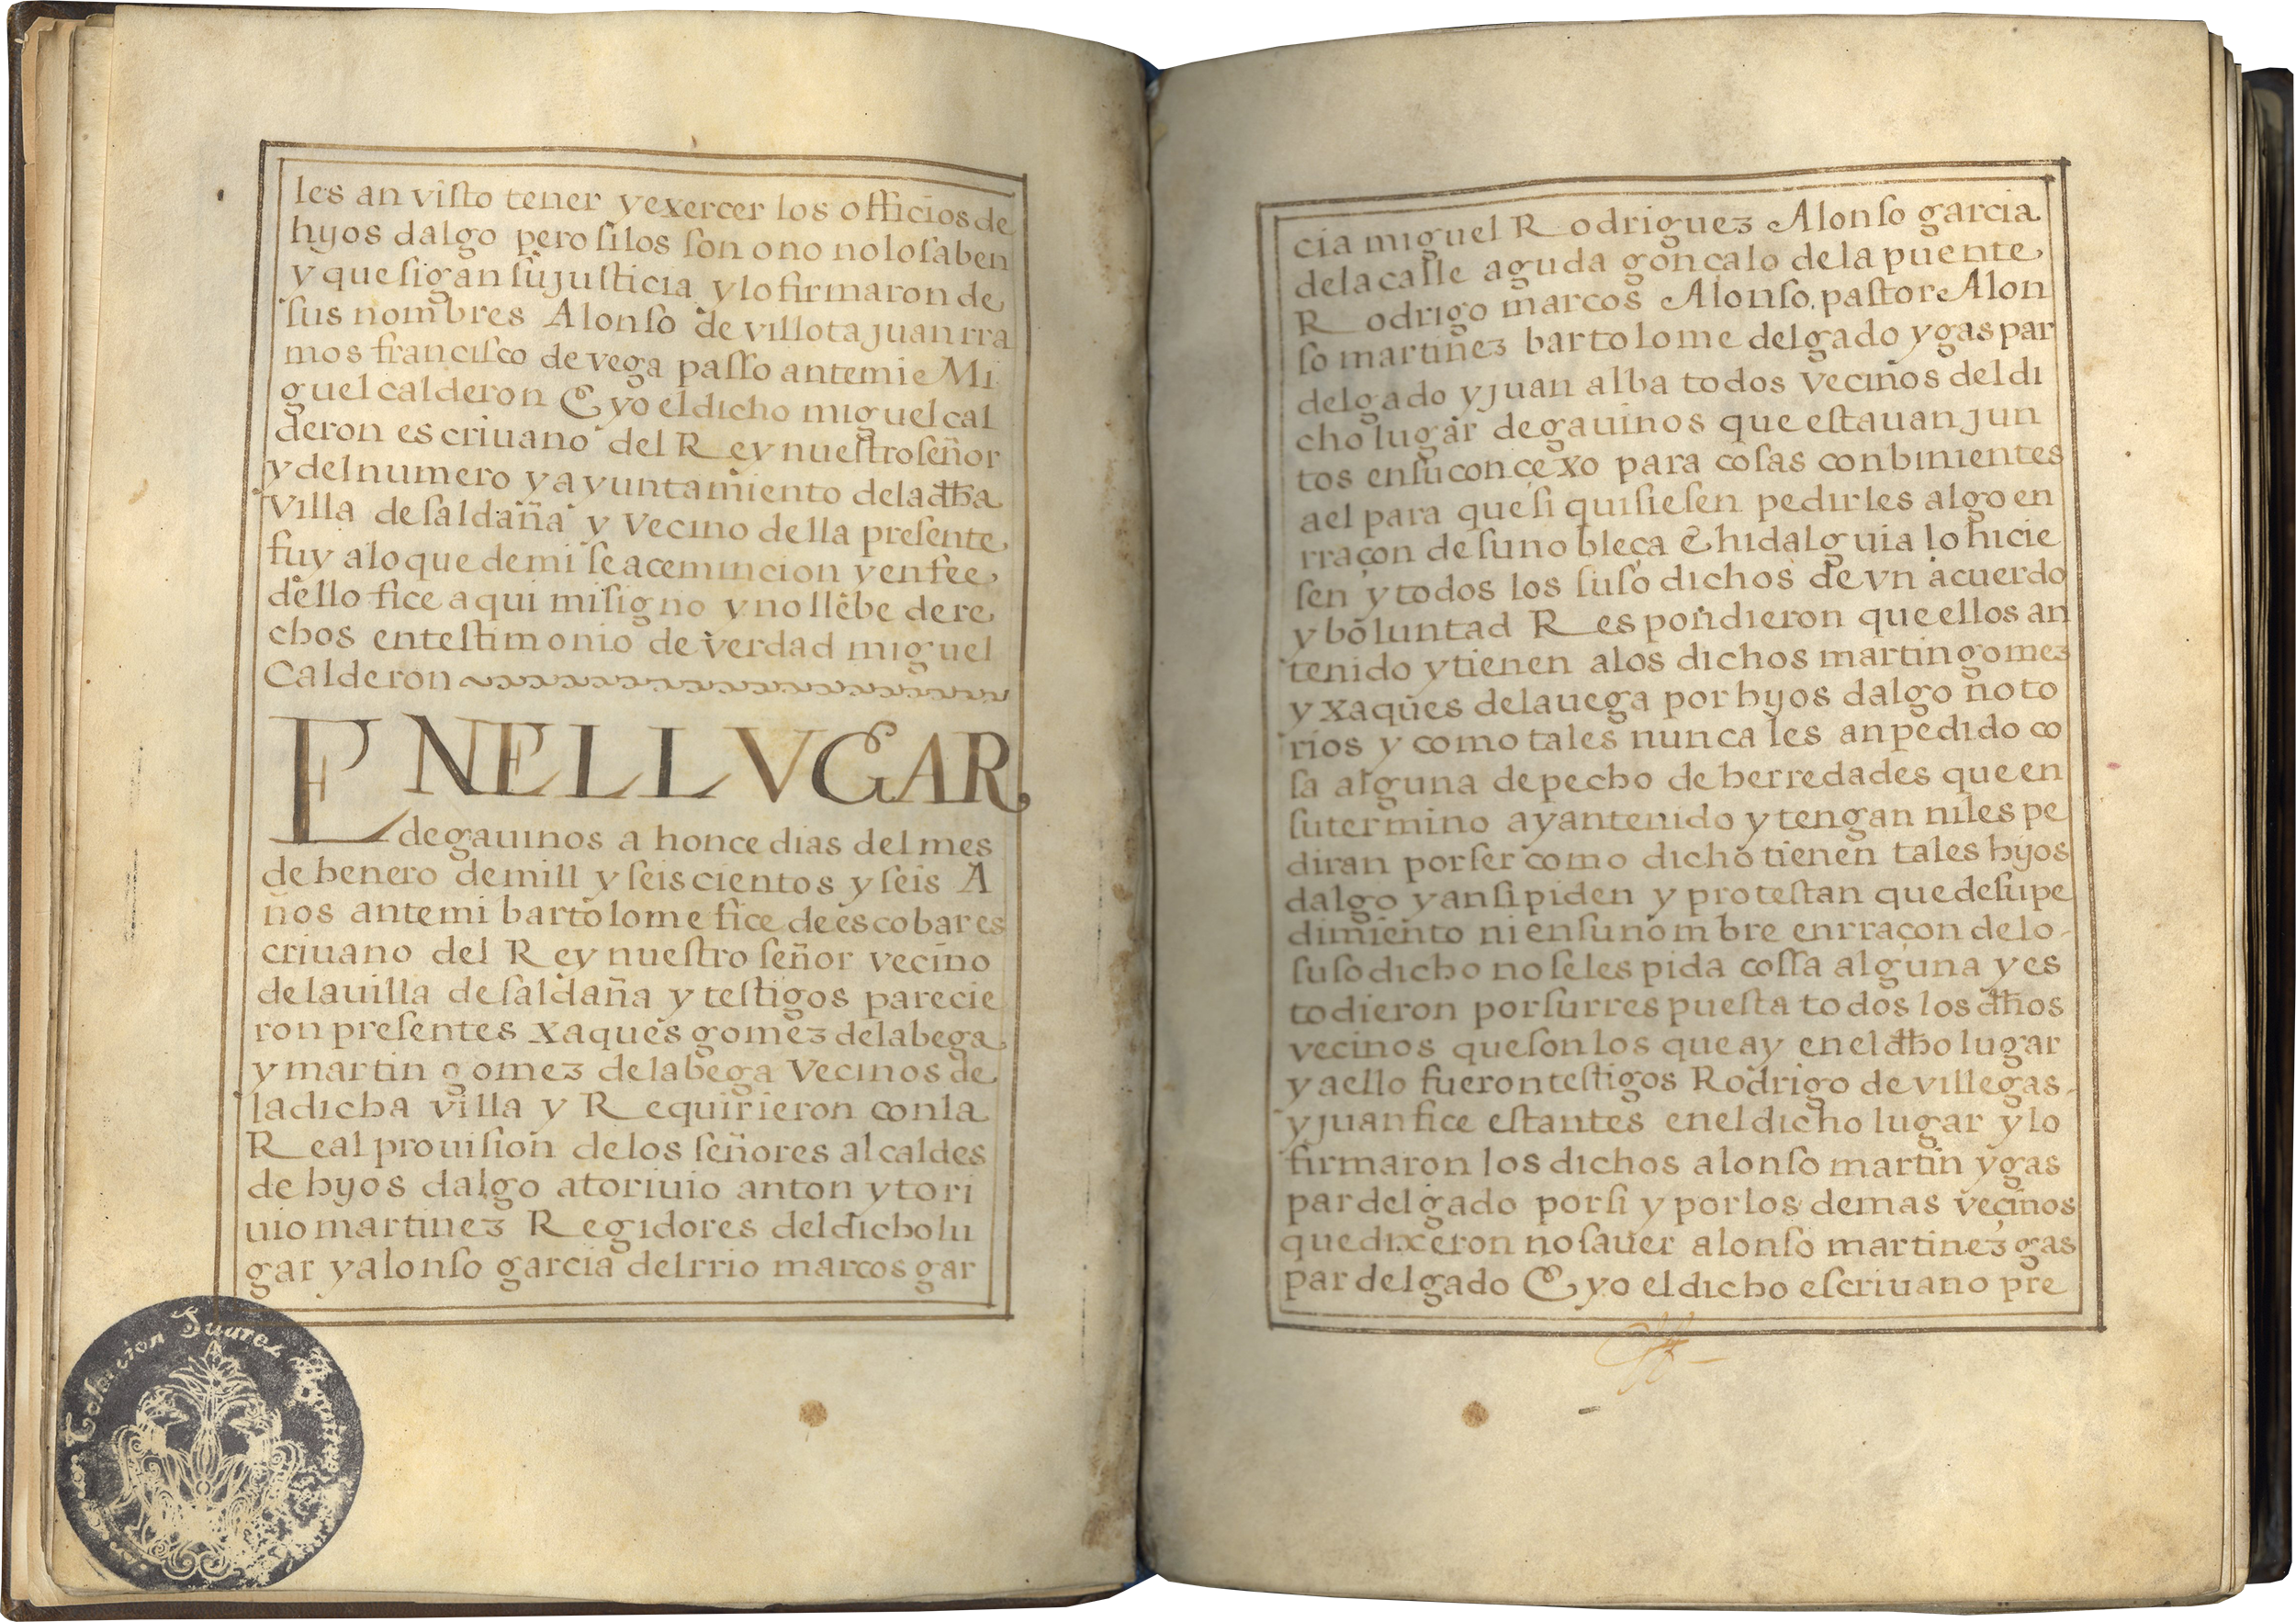 les an visto tener y exercer los officios de
hijos dalgo pero si los son o no no lo saben
y que sigan su justicia y lo firmaron de
sus nombres Alonso de villota juan rra
mos francisco de vega passo ante mi e Mi
guel calderon E yo el dicho miguel cal
deron escriuano del Rey nuestro señor
y del numero y ayuntamiento de la dha
Villa de saldaña y Vecino della presente
fuy a lo que de mi se ace mincion y en fee
dello fice aqui mi signo y no llebe dere
chos en testimonio de verdad miguel
Calderon
EN EL LVGAR
de gauinos a honce dias del mes
de henero de mill y seiscientos y seis A
ños ante mi bartolome fice de escobar es
criuano del Rey nuestro señor vecino
de la uilla de saldaña y testigos parecie
ron presentes xaques gomez de la bega
y martin gomez de la bega Vecinos de
la dicha villa y Requirieron con la
Real prouision de los señores alcaldes
de hijos dalgo a toriuio anton y tori
uio martinez Regidores del dicho lu
gar y alonso garcia del rrio marcos gar
cia miguel Rodriguez Alonso garcia
de la calle aguda gonçalo de la puente
Rodrigo marcos Alonso pastor Alon
so martinez bartolome delgado y gaspar
delgado y juan alba todos vecinos del di
cho lugar de gauinos que estauan jun
tos en su conçexo para cosas conbinientes
a el para que si quisiesen pedirles algo en
rraçon de su nobleça E hidalguia lo hicie
sen y todos los suso dichos de vn acuerdo
y boluntad Respondieron que ellos an
tenido y tienen a los dichos martin gomez
y xaques de la uega por hijos dalgo noto
rios y como tales nunca les an pedido co
sa alguna de pecho de herredades que en
su termino ayan tenido y tengan ni les pe
diran por ser como dicho tienen tales hijos
dalgo y ansi piden y protestan que de su pe
dimiento ni en su nombre en rraçon de lo
suso dicho no se les pida cossa alguna y es
to dieron por su rrespuesta todos los dhos
vecinos que son los que ay en el dho lugar
y a ello fueron testigos Rodrigo de villegas
y juan fice estantes en el dicho lugar y lo
firmaron los dichos alonso martin y gas
par delgado por si y por los demas veçinos
que dixeron no sauer alonso martinez gas
par delgado E yo el dicho escriuano pre
Coleccion